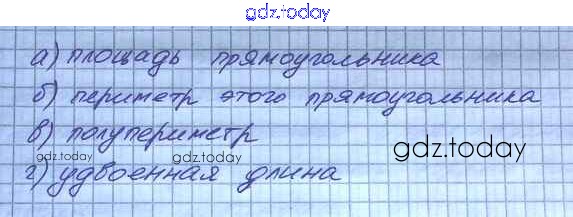 gdz.today
а) площадь прямоугольника
б) периметр этого прямоугольника
в) полупериметр
gdz.today gdz.today gdz.today
г) удвоенная длина